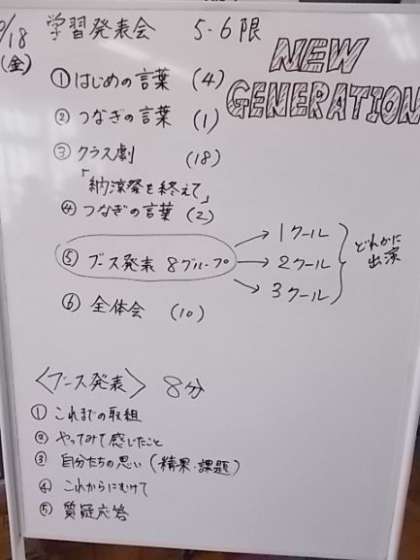 /18 学習発表会 5・6限
(金)
NEW
GENERATION
①はじめの言葉 (4)
②つなぎの言葉 (1)
③クラス劇 (18)
「納涼祭を終えて」
④つなぎの言葉 (2)
⑤ブース発表 8グループ
1クール
2クール
3クール
どれかに
出演
⑥全体会 (10)
〈ブース発表〉 8分
①これまでの取組
②やってみて感じたこと
③自分たちの思い(結果・課題)
④これからにむけて
⑤質疑応答